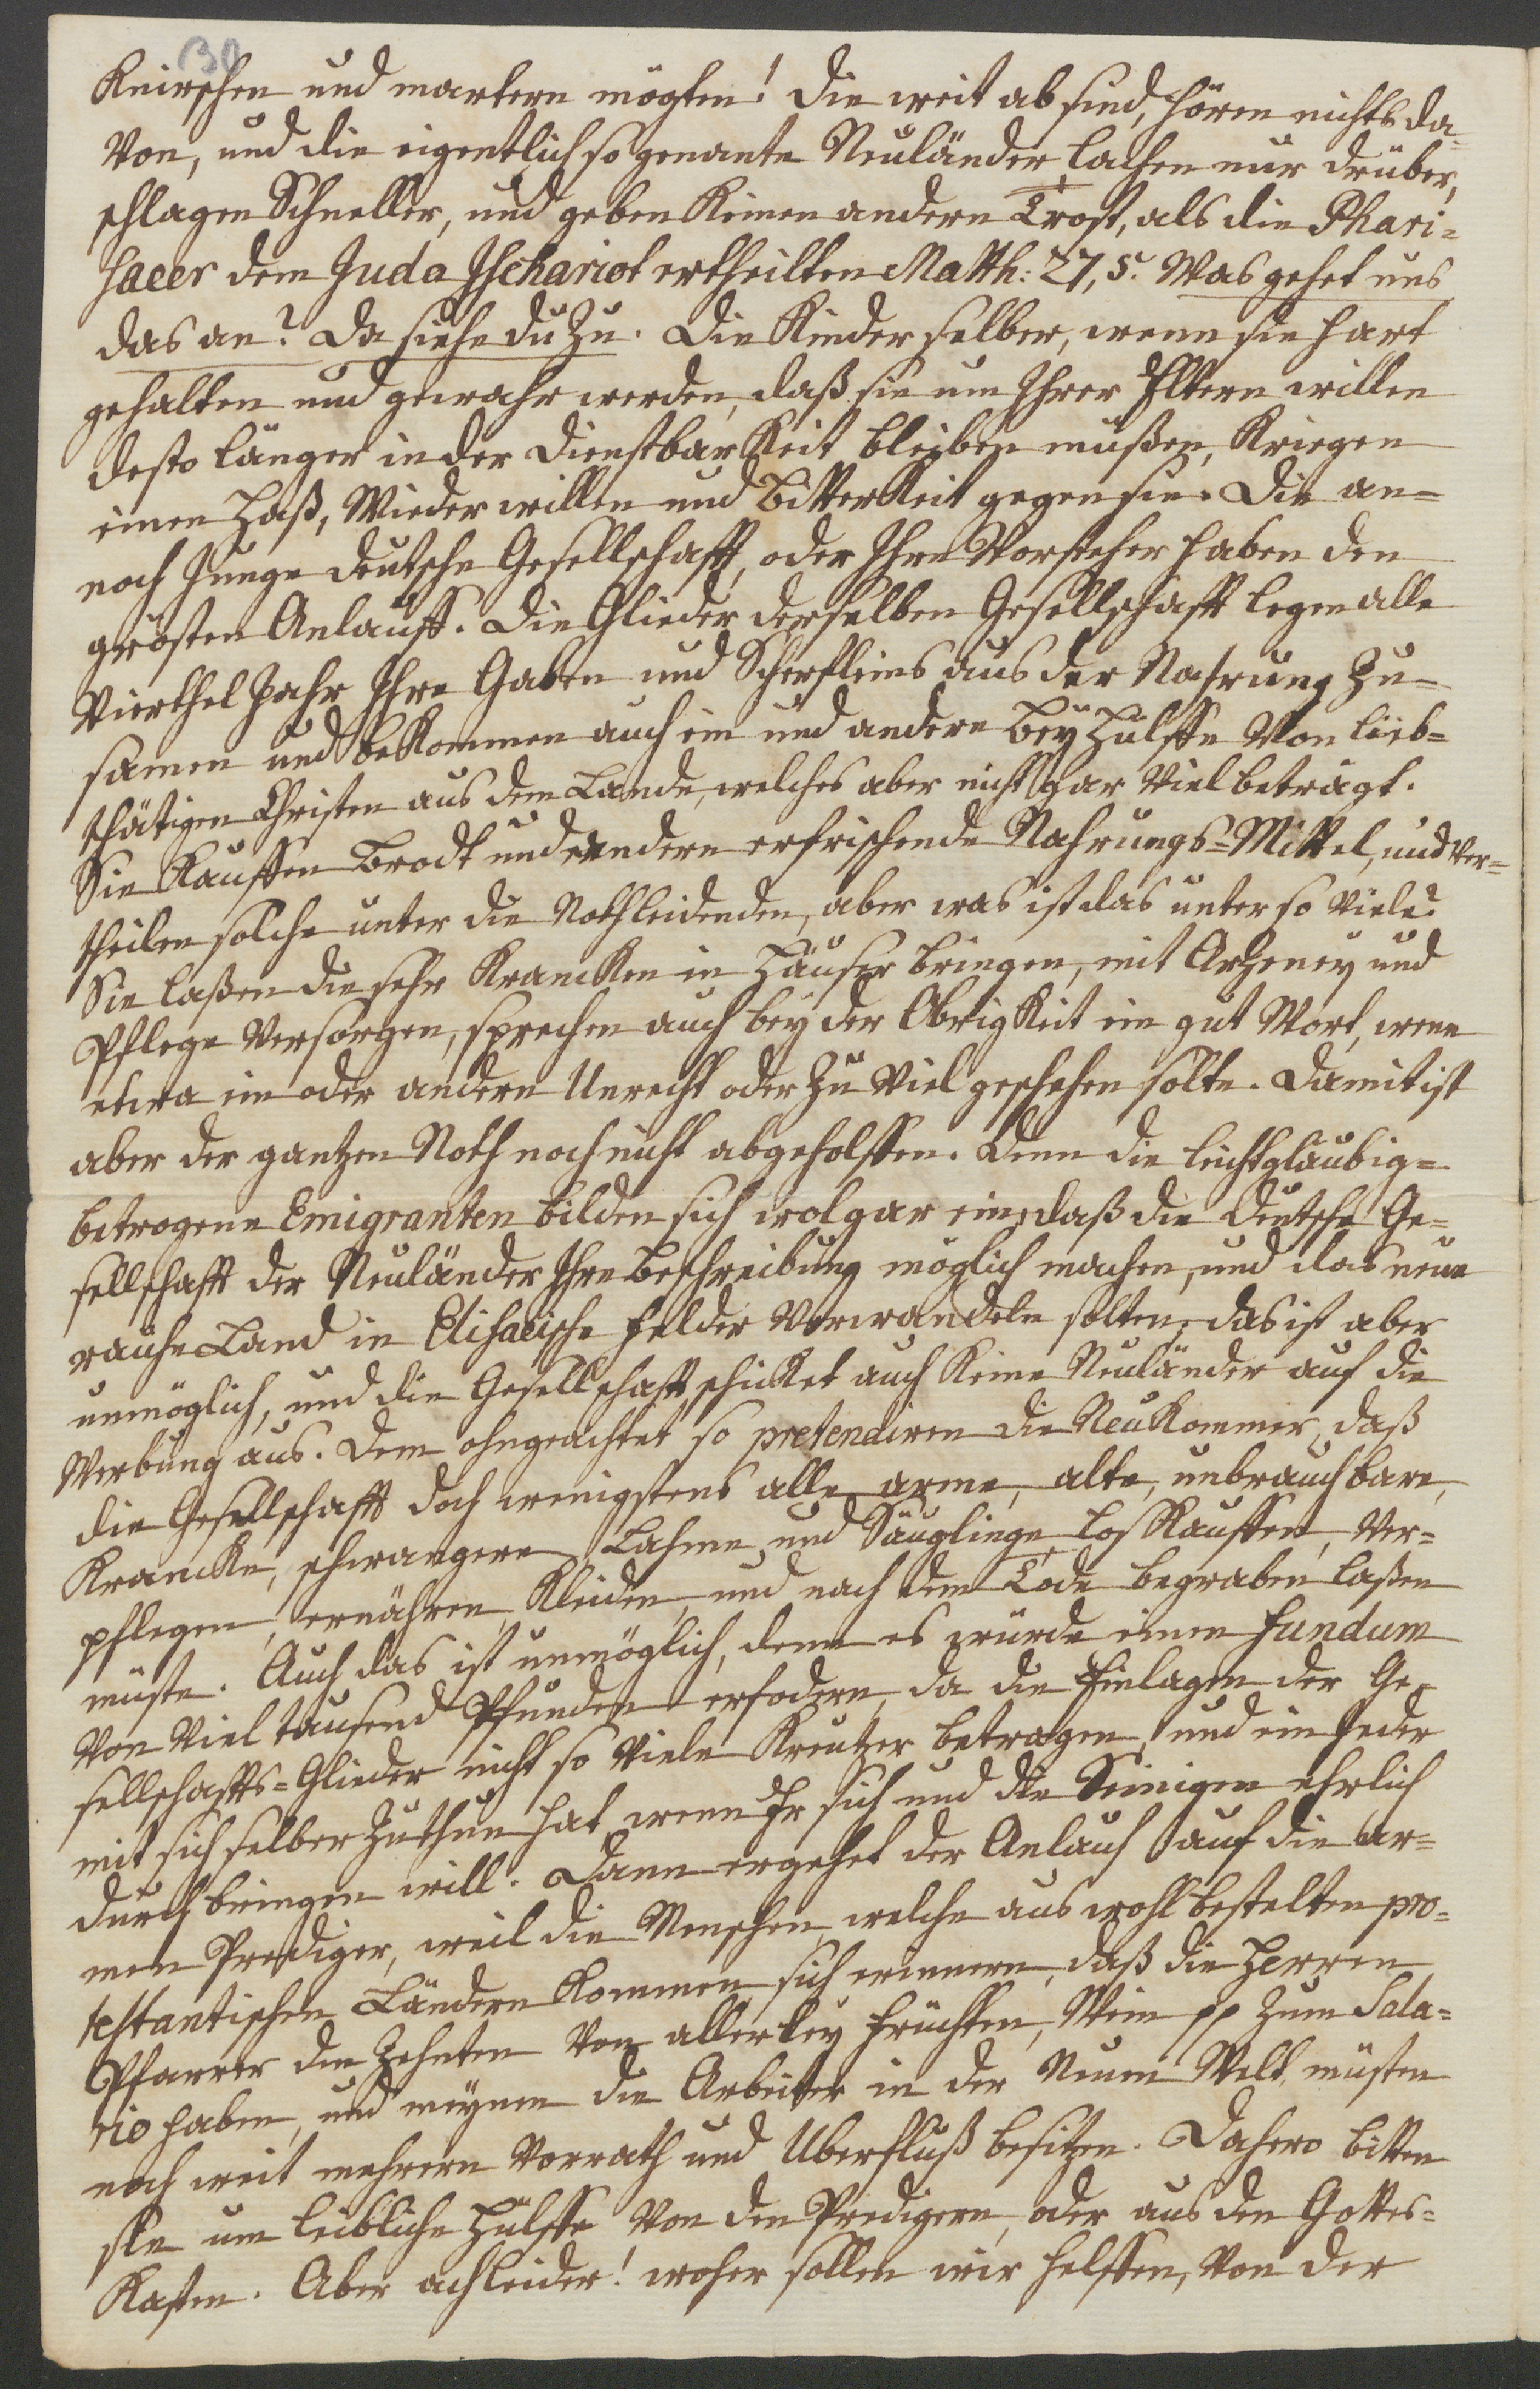 30
Knirschen und martern mögten! Die weit ab sind, hören nichts da-
von, und die eigentlich so genante Neuländer lachen nur drüber,
schlagen Schneller, und geben keinen andern Trost, als die Phari-
saeer dem Juda Ischariot ertheilten Matth: 27, 5. Was gehet uns
das an? Da siehe du zu. Die Kinder selber, wenn sie hart
gehalten und gewahr werden, daß sie um Ihrer Eltern willen
desto länger in der Dienstbarkeit bleiben müßen, kriegen
einen Haß, Wiederwillen und Bitterkeit gegen sie. Die an-
noch junge deutsche Gesellschafft, oder Ihre Vorsteher haben den
grösten Anlauff. Die Glieder derselben Gesellschafft legen alle
Vierthel Jahr Ihre Gaben und Scherfleins aus der Nahrung zu-
samen und bekommen auch ein und andere Bey Hülffe von lieb-
thätigen Christen aus dem Lande, welches aber nicht gar viel beträgt.
Sie kauffen Brodt und andere erfrischende Nahrungs-Mittel, und ver-
theilen solche unter die Nothleidenden, aber was ist das unter so viele?
Sie laßen die sehr Krancken in Häuser bringen, mit Arzeney und
Pflege versorgen, sprechen auch bey der Obrigkeit ein gut Wort, wenn
etwa ein oder andern Unrecht oder zu viel geschehen solte. Damit ist
aber der gantzen Noth noch nicht abgeholffen. Denn die leichtgläubig-
betrogene Emigranten bilden sich wol gar ein, daß die Deutsche Ge-
sellschafft der Neuländer Ihre Beschreibung möglich machen, und das neue
rauhe Land in Elisaeische Felder verwandeln solten, das ist aber
unmöglich, und die Gesellschafft schicket auch keine Neuländer auf die
Werbung aus. Dem ohngeachtet so pretendiren die Neukommer, daß
die Gesellschafft doch wenigstens alle arme, alte, unbrauchbare,
Krancke, schwangere, Lahme und Säuglinge loskauffen, ver-
pflegen, ernähren, kleiden, und nach dem Tode begraben laßen
müste. Auch das ist unmöglich, denn es würde einen Fundum
von viel tausend Pfunden erfodern, da die Einlagen der Ge-
sellschaffts-Glieder nicht so viele Kreutzer betragen, und ein jeder
mit sich selber zu thun hat, wenn Er sich und die Seinigen ehrlich
durchbringen will. Dann ergehet der Anlauf auf die ar-
men Prediger, weil die Menschen, welche aus wohl bestelten pro-
testantischen Ländern kommen, sich erinnern, daß die Herren
Pfarrer den Zehnten von allerley Früchten, Wein pp zum Sala-
rio haben, und meynen die Arbeiter in der Neuen Welt, müsten
noch weit mehrern Vorrath und Uberfluß besitzen. Dahero bitten
sie um leibliche Hülffe von den Predigern, oder aus den Gottes-
Kasten. Aber ach leider! woher sollen wir helffen, von der